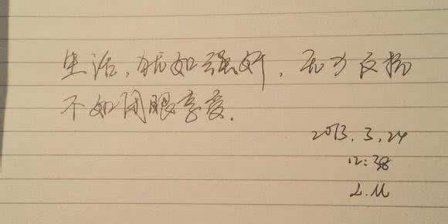 生活，就如强奸，无力反抗
不如闭眼享受.
2013.3.24
12:38
L.M